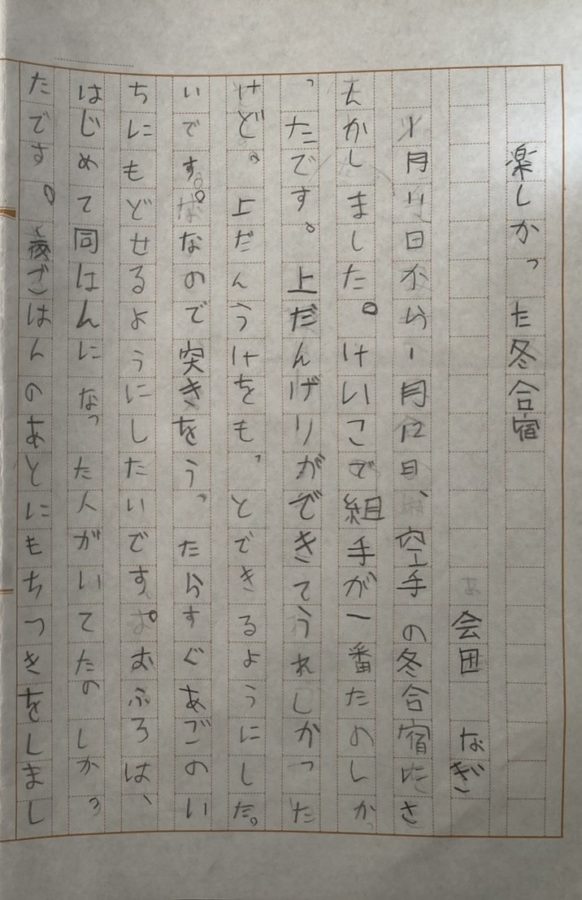 楽しかった冬合宿
会田 なぎ
1月11日から1月12日、空手の冬合宿にさ
んかしました。けいこで組手が一番たのしか
ったです。上だんげりができてうれしかった
けど。上だんうけをも、とできるようにした。
いです。なので突きをう、たらすぐあごのい
ちにもどせるようにしたいです。おふろは、
はじめて同はんになった人がいてたのしかっ
たです。夜ごはんのあとにもちつきをしまし